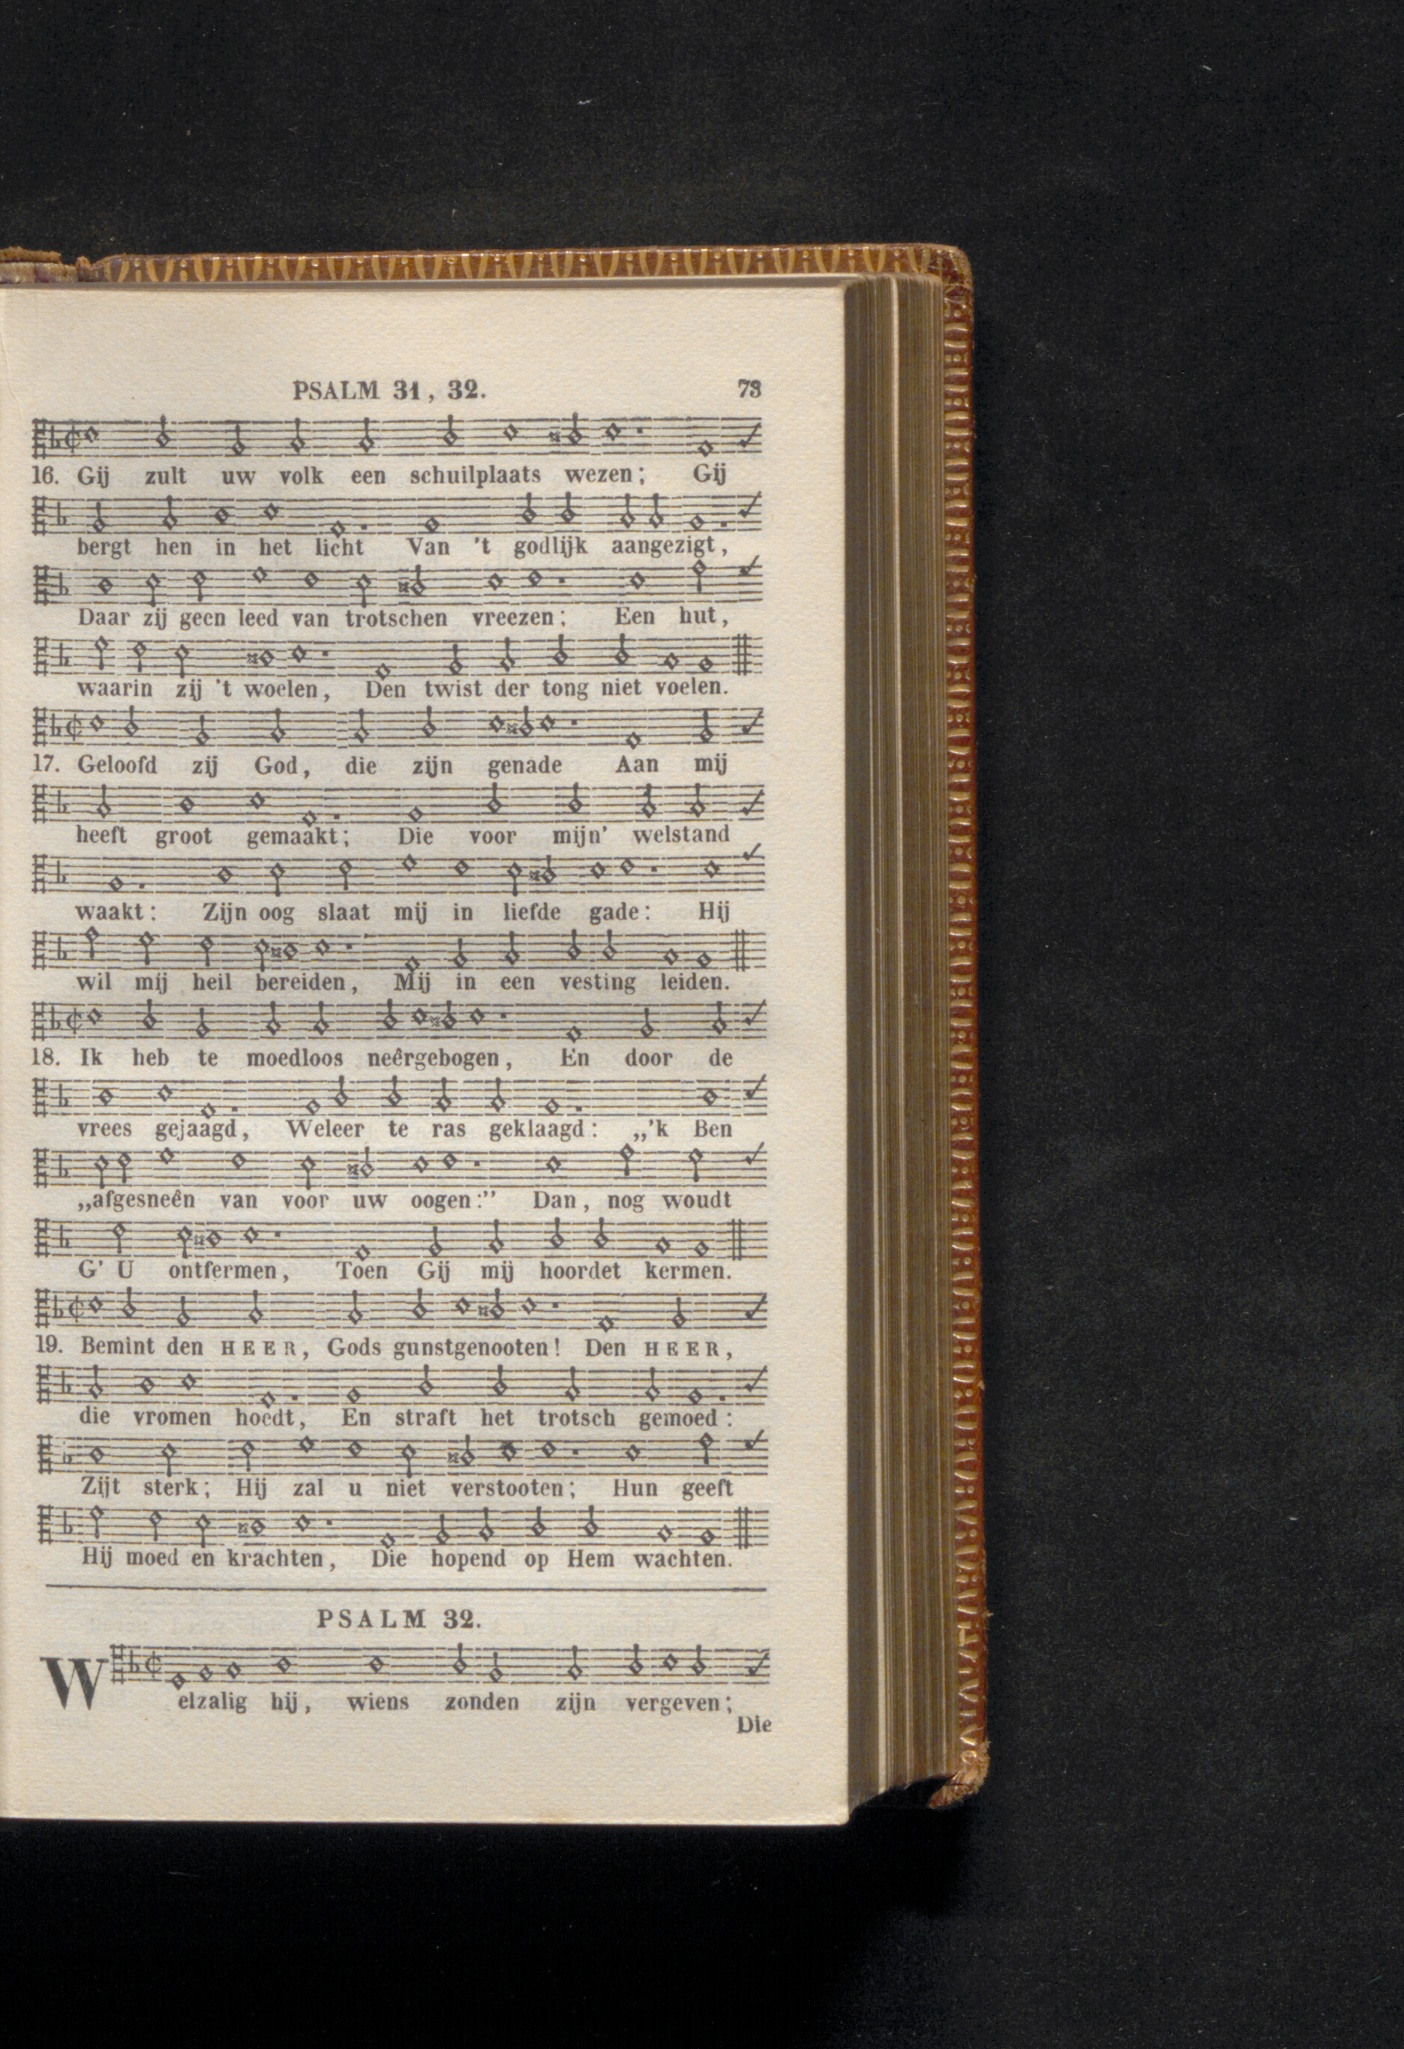 PSALM 31, 32. 73
16. Gij zult uw volk een schuilplaats wezen; Gij
bergt hen in het licht Van 't godlijk aangezigt,
Daar zij geen leed van trotschen vreezen; Een hut,
waarin zij 't woelen, Den twist der tong niet voelen.
17. Geloofd zij God, die zijn genade Aan mij
heeft groot gemaakt; Die voor mijn' welstand
waakt: Zijn oog slaat mij in liefde gade: Hij
wil mij heil bereiden, Mij in een vesting leiden.
18. Ik heb te moedloos neêrgebogen, En door de
vrees gejaagd, Weleer te ras geklaagd: „'k Ben
„afgesneên van voor uw oogen:” Dan, nog woudt
G' U ontfermen, Toen Gij mij hoordet kermen.
19. Bemint den HEER, Gods gunstgenooten! Den HEER,
die vromen hoedt, En straft het trotsch gemoed:
Zijt sterk; Hij zal u niet verstooten; Hun geeft
Hij moed en krachten, Die hopend op Hem wachten.
PSALM 32.
Welzalig hij, wiens zonden zijn vergeven;
Die